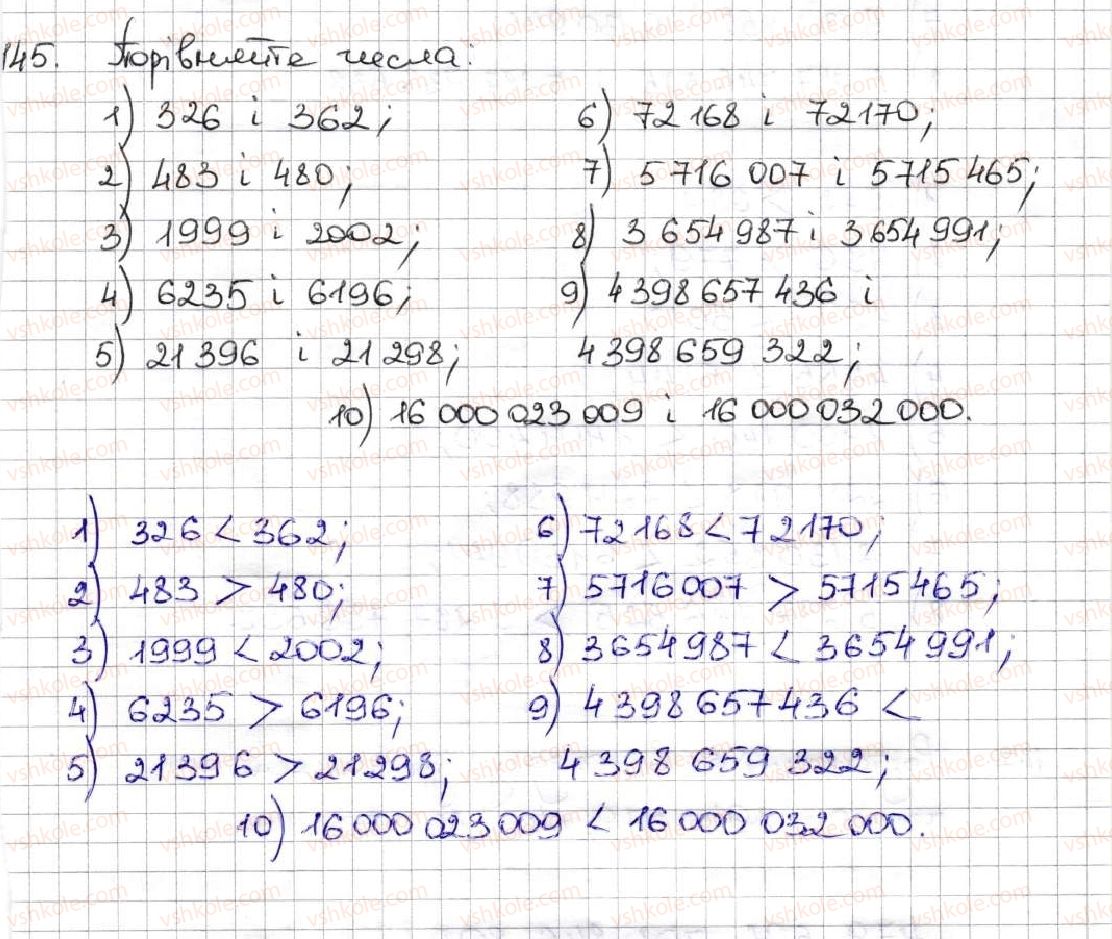 145. Порівняйте числа:
1) 326 і 362; 6) 72 168 і 72170;
2) 483 і 480; 7) 5 716 007 і 5 715 465;
3) 1999 і 2002; 8) 3 654 987 і 3 654 991;
4) 6235 і 6196; 9) 4 398 657 436 і
5) 21 396 і 21 298; 4 398 659 322;
10) 16 000 023 009 і 16 000 032 000.
1) 326 < 362; 6) 72168 < 72170;
2) 483 > 480; 7) 5716007 > 5715465;
3) 1999 < 2002; 8) 3654987 < 3654991;
4) 6235 > 6196; 9) 4 398 657 436 <
5) 21396 > 21298; 4 398 659 322;
10) 16 000 023 009 < 16 000 032 000.
vshkole.com